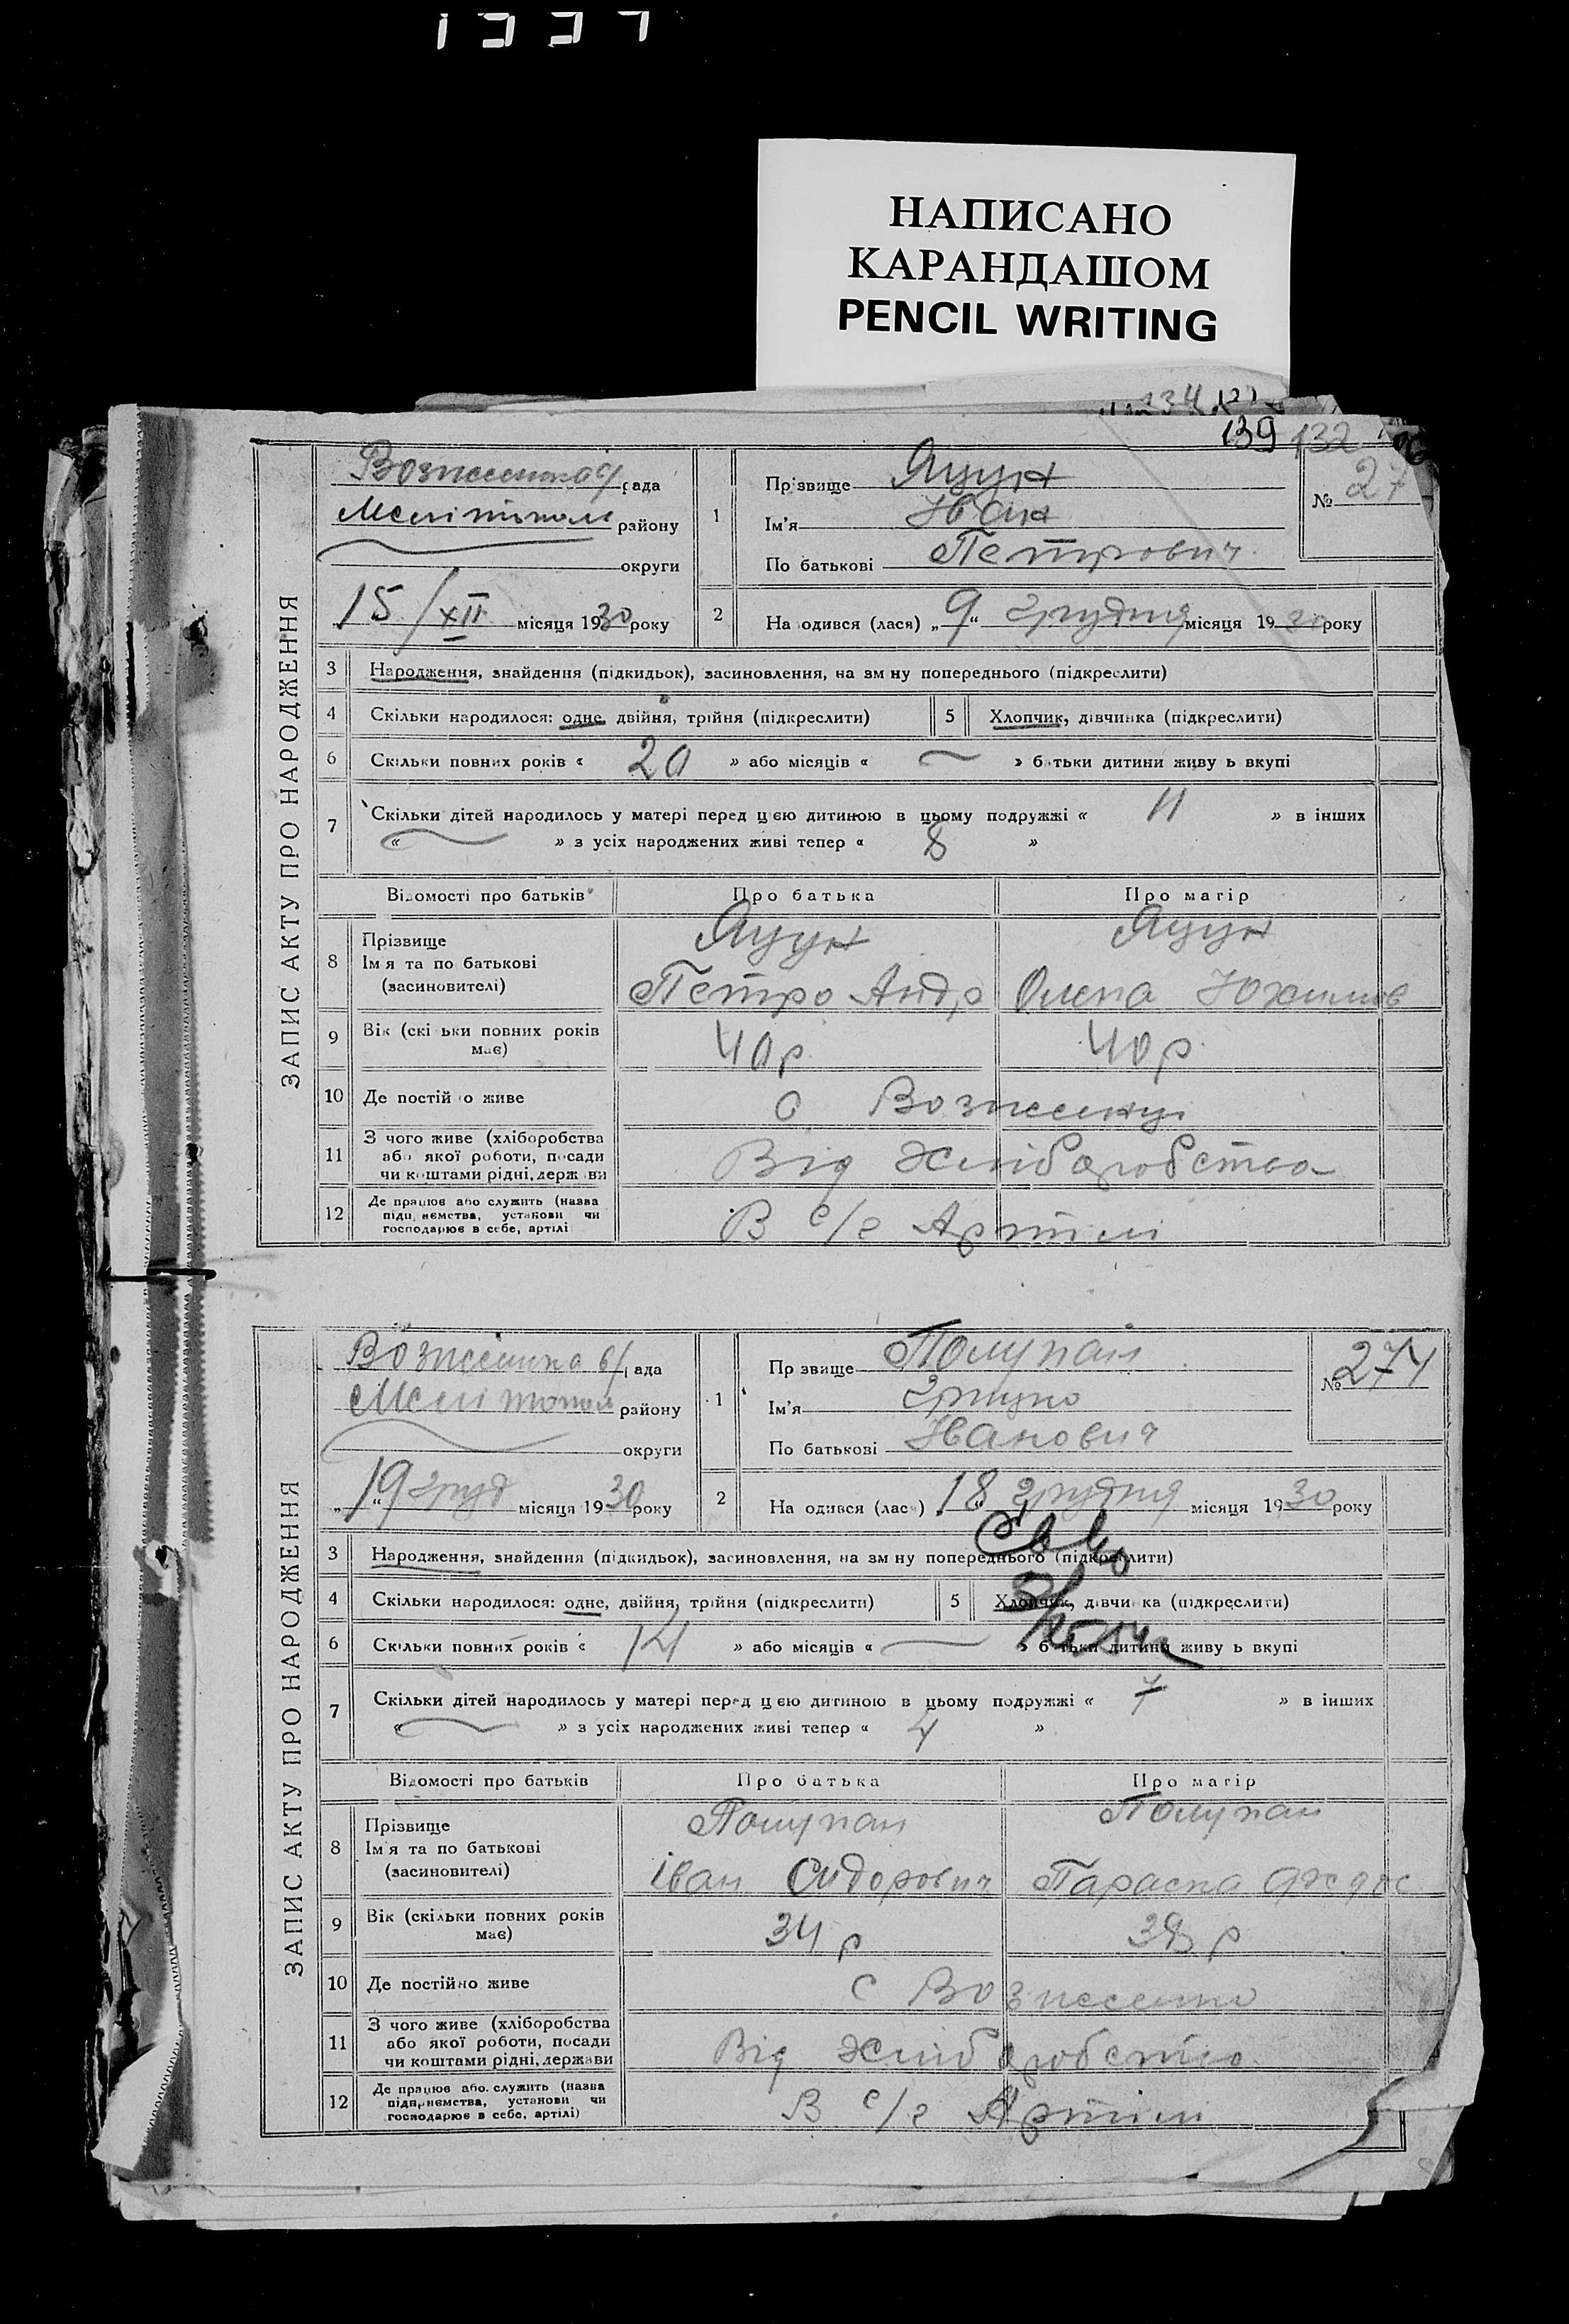 1337
НАПИСАНО
КАРАНДАШОМ
PENCIL WRITING
139 132
ЗАПИС АКТУ ПРО НАРОДЖЕННЯ
рада
Мелітополь району
округи
15/XII місяця 1930 року
№ 27
1 Прізвище Яцун
Ім'я Іван
По батькові Петрович
2 На одився (лася) „9“ грудня місяця 1930 року
3 Народження, знайдення (підкидьок), засиновлення, на зм ну попереднього (підкреслити)
4 Скільки народилося: одне, двійня, трійня (підкреслити) 5 Хлопчик, дівчинка (підкреслити)
6 Скільки повних років « 20 » або місяців « » батьки дитини живу ь вкупі
7 Скільки дітей народилось у матері перед цією дитиною в цьому подружжі « 11 » в інших
« » з усіх народжених живі тепер « 8 »
Відомості про батьків Про батька Про матір
8 Прізвище Яцун Яцун
Ім'я та по батькові
(засиновителі) Петро Андр Олена Юхимов
9 Вік (скі ьки повних років
має) 40 р. 40 р.
10 Де постій о живе с Вознесенці
11 З чого живе (хліборобства
або якої роботи, посади
чи коштами рідні, держ ви Від хліборобства
12 Де працює або служить (назва
підприємства, установи чи
господарює в себе, артілі В с/г Артілі
ЗАПИС АКТУ ПРО НАРОДЖЕННЯ
Вознесенка рада
Мелітополь району
округи
„19“ груд місяця 1930 року
№ 274
1 Пр звище Полупан
Ім'я Грицко
По батькові Іванович
2 На одився (лася) „18“ грудня місяця 1930 року
3 Народження, знайдення (підкидьок), засиновлення, на зм ну попереднього (підкреслити)
4 Скільки народилося: одне, двійня, трійня (підкреслити) 5 Хлопчик, дівчинка (підкреслити)
6 Скільки повних років « 14 » або місяців « » батьки дитини живу ь вкупі
7 Скільки дітей народилось у матері перед цією дитиною в цьому подружжі « 7 » в інших
« » з усіх народжених живі тепер « 4 »
Відомості про батьків Про батька Про матір
8 Прізвище Полупан Полупан
Ім'я та по батькові
(засиновителі) Іван Сидорович Параска
9 Вік (скільки повних років
має) 34 р р
10 Де постійно живе с Вознесенка
11 З чого живе (хліборобства
або якої роботи, посади
чи коштами рідні, держави Від хліборобства
12 Де працює або служить (назва
підприємства, установи чи
господарює в себе, артілі) В с/г Артілі